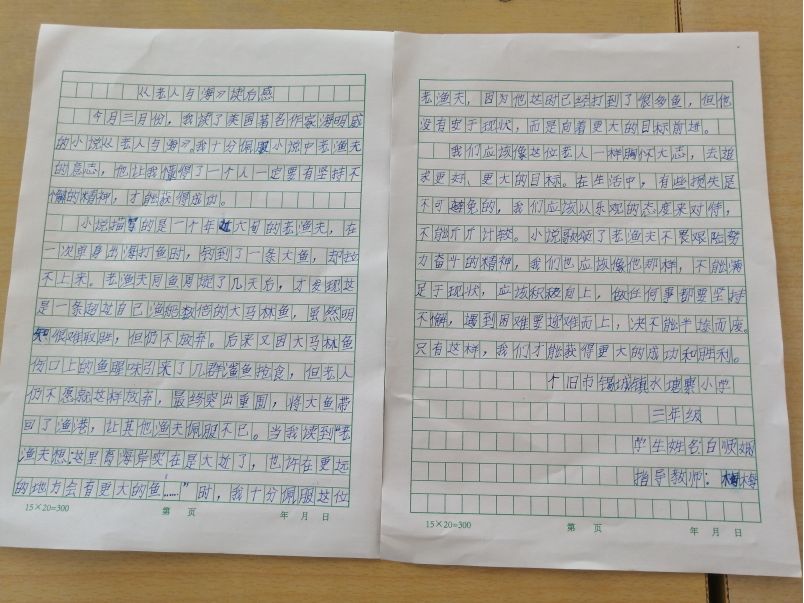 《老人与海》读后感
今月三月份，我读了美国著名作家海明威
的小说《老人与海》我十分佩服小说中老渔夫
的意志，他让我懂得了一个人一定要有坚持不
懈的精神，才能获得成功。
小说描写的是一个年过六旬的老渔夫，在
一次单身出海打鱼时，钓到了一条大鱼，却拉
不上来。老渔夫同鱼周旋了几天后，才发现这
是一条超过自己渔船数倍的大马林鱼，虽然明
知很难取胜，但仍不放弃。后来又因大马林鱼
伤口上的鱼腥味引来了几群鲨鱼抢食，但老人
仍不愿就这样放弃，最终突出重围，将大鱼带
回了渔港，让其他渔夫佩服不已。当我读到“老
渔夫想：这里离海岸实在是太近了，也许在更远
的地方会有更大的鱼……”时，我十分佩服这位
15×20=300 第 页 年 月 日
老渔夫，因为他这时已经打到了很多鱼，但他
没有安于现状，而是向着更大的目标前进。
我们应该像这位老人一样胸怀大志，去追
求更好、更大的目标。在生活中，有些损失是
不可避免的，我们应该以乐观的态度来对待，
不能斤斤计较。小说歌颂了老渔夫不畏艰险努
力奋斗的精神，我们也应该像他那样，不能满
足于现状，应该积极向上，做任何事都要坚持
不懈，遇到困难要迎难而上，决不能半途而废。
只有这样，我们才能获得更大的成功和胜利。
个旧市锡城镇水塘寨小学
三年级
学生姓名白顺
指导教师：梅
15×20=300 第 页 年 月 日